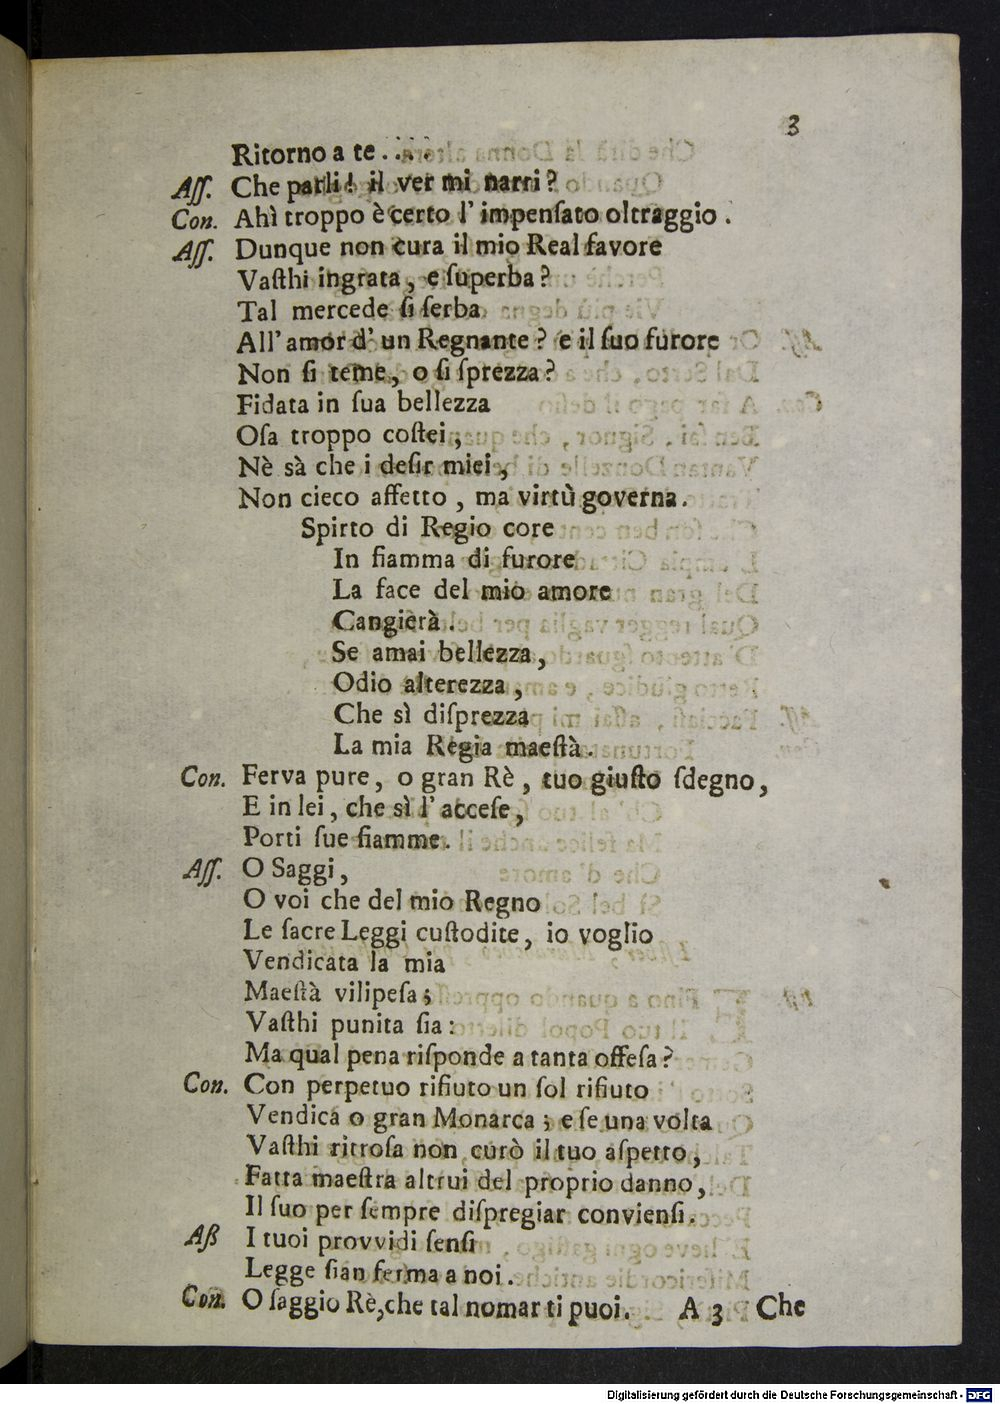 3
Ritorno a te . . . .
Aſſ. Che parli! il ver mi narri?
Con. Ahì troppo è certo l' impenſato oltraggio .
Aſſ. Dunque non cura il mio Real favore
Vaſthi ingrata, e ſuperba?
Tal mercede ſi ſerba
All' amor d' un Regnante? e il ſuo furore
Non ſi teme, o ſi ſprezza?
Fidata in ſua bellezza
Oſa troppo coſtei,
Nè sà che i deſir miei,
Non cieco affetto, ma virtù governa.
Spirto di Regio core
In fiamma di furore
La face del mio amore
Cangierà.
Se amai bellezza,
Odio alterezza,
Che sì diſprezza
La mia Regia maeſtà.
Con. Ferva pure, o gran Rè, tuo giuſto ſdegno,
E in lei, che sì l' acceſe,
Porti ſue fiamme.
Aſſ. O Saggi,
O voi che del mio Regno
Le ſacre Leggi cuſtodite, io voglio
Vendicata la mia
Maeſtà vilipeſa;
Vaſthi punita ſia:
Ma qual pena riſponde a tanta offeſa?
Con. Con perpetuo rifiuto un ſol rifiuto
Vendica o gran Monarca; e ſe una volta
Vaſthi ritroſa non curò il tuo aſpetto,
Fatta maeſtra altrui del proprio danno,
Il ſuo per ſempre diſpregiar convienſi.
Aß I tuoi provvidi ſenſi
Legge ſian ferma a noi.
Con. O ſaggio Rè, che tal nomar ti puoi. A 3 Che
Digitalisierung gefördert durch die Deutsche Forschungsgemeinschaft - DFG